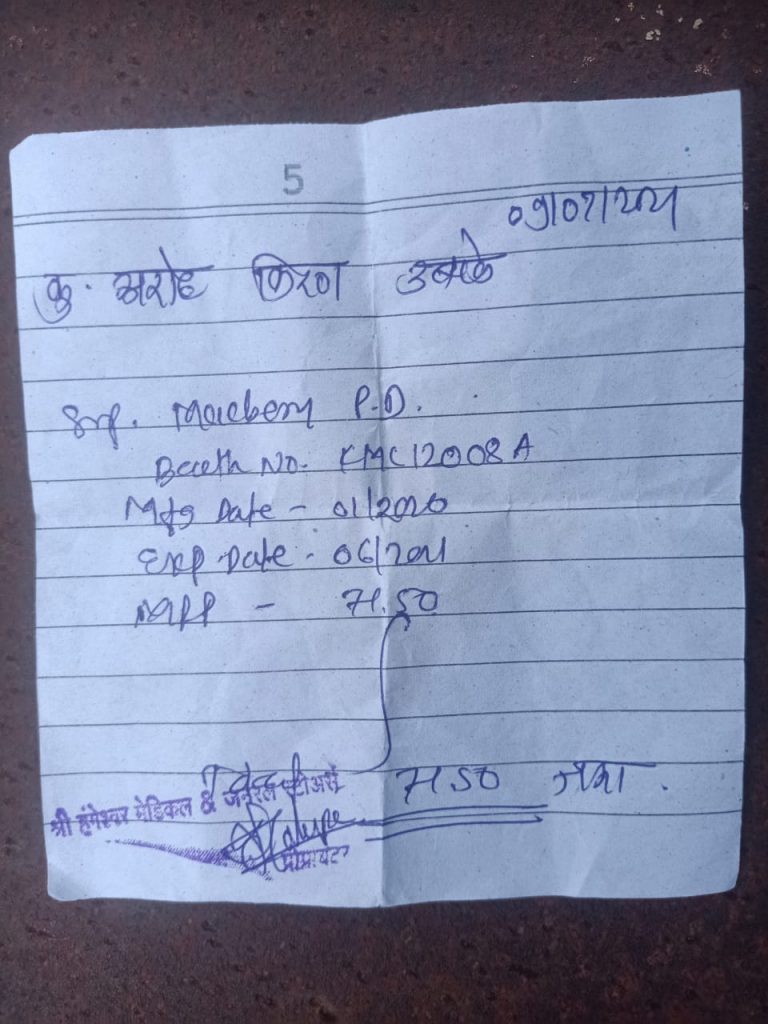 5
09/07/2021
कु. अरोह किरण उबाळे
Syp. Macbery P.D.
Batch No. KMC12008A
Mfg Date - 01/2020
Exp Date - 06/2021
MRP - 71.50
71.50 जमा.
श्री हंगेश्वर मेडिकल & जनरल स्टोअर्स
प्रोप्रायटर